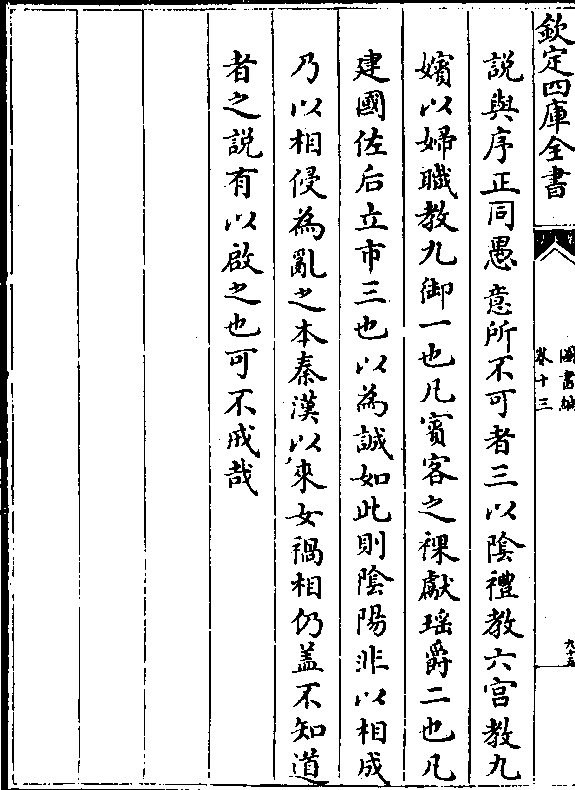 欽定四庫全書
圖書編
卷十三
九十五
說與序正同愚意所不可者三以陰禮教六宫教九
嬪以婦職教九御一也凡賓客之祼獻瑶爵二也凡
建國佐后立市三也以為誠如此則陰陽非以相成
乃以相侵為亂之本秦漢以來女禍相仍盖不知道
者之説有以啟之也可不戒哉